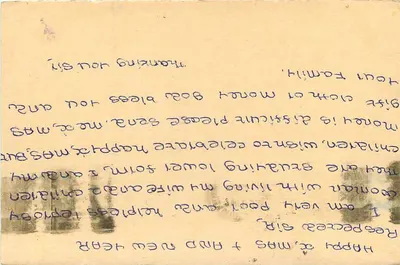 HAPPY X, MAS + AND NEW YEAR
Respected Sir,
I am very poor and helpless leprosy
woman with living my wife and children
they are studying lower form, I and my
children, wish to celebrate Happy X, MAS, But
Money is difficult Please send. me X, MAS
gift cloth or money God bless you and
your Family.
Thanking you sir,